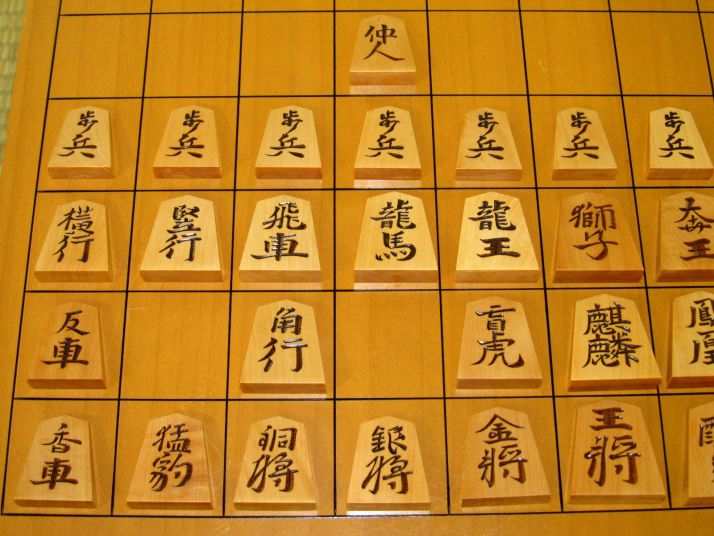 仲人
歩兵 歩兵 歩兵 歩兵 歩兵 歩兵 歩兵
横行 竪行 飛車 龍馬 龍王 獅子 奔王
反車 角行 盲虎 麒麟 鳳凰
香車 猛豹 銅將 銀將 金將 王將